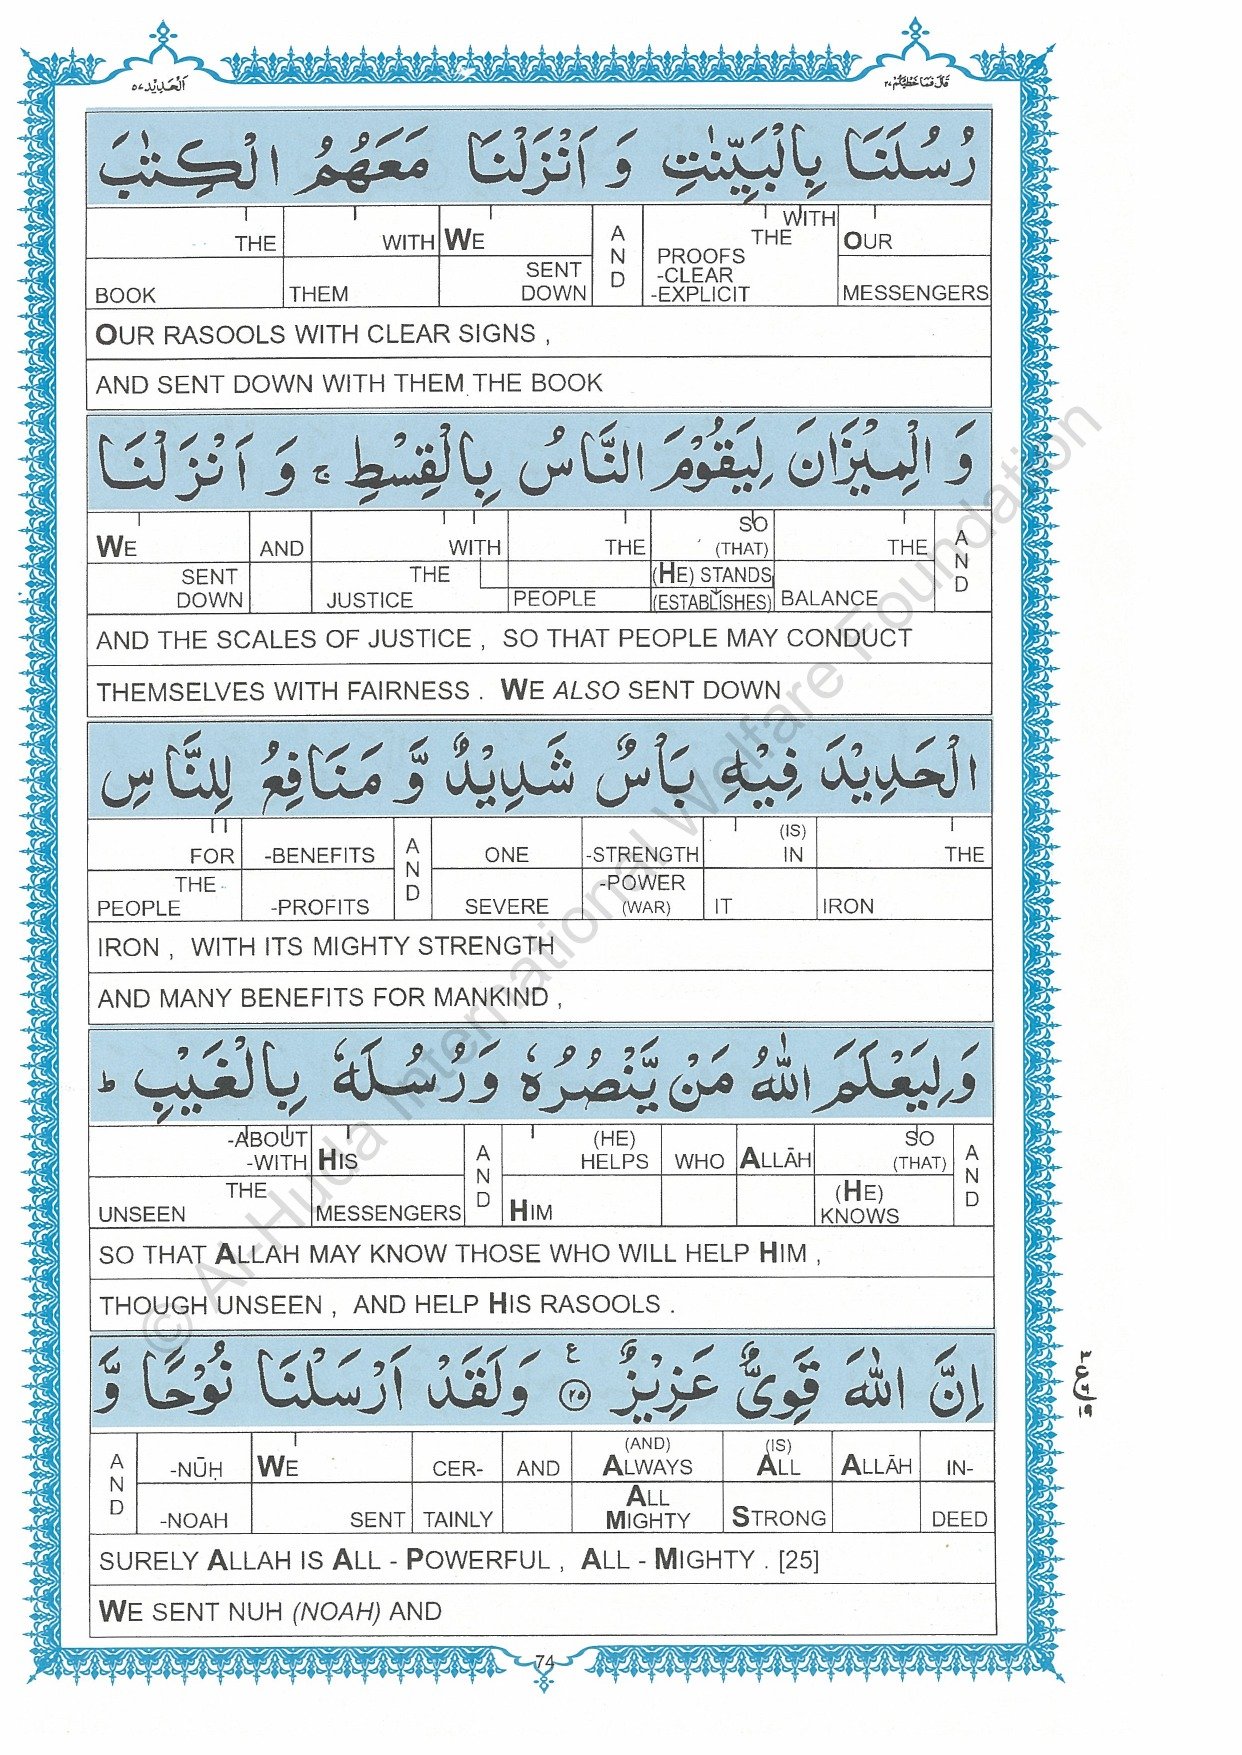 اَلْحَدِيْد ٥٧
قَالَ فَمَا خَطْبُكُمْ ٢٧
رُسُلَنَا بِالْبَيِّنٰتِ وَ اَنْزَلْنَا مَعَهُمُ الْكِتٰبَ
THE WITH WE AND WITH THE OUR
BOOK THEM SENT DOWN PROOFS -CLEAR -EXPLICIT MESSENGERS
OUR RASOOLS WITH CLEAR SIGNS ,
AND SENT DOWN WITH THEM THE BOOK
وَ الْمِيْزَانَ لِيَقُوْمَ النَّاسُ بِالْقِسْطِ ج وَ اَنْزَلْنَا
WE AND WITH THE SO (THAT) THE AND
SENT DOWN THE JUSTICE PEOPLE (HE) STANDS (ESTABLISHES) BALANCE
AND THE SCALES OF JUSTICE , SO THAT PEOPLE MAY CONDUCT
THEMSELVES WITH FAIRNESS . WE ALSO SENT DOWN
الْحَدِيْدَ فِيْهِ بَاْسٌ شَدِيْدٌ وَّ مَنَافِعُ لِلنَّاسِ
FOR -BENEFITS AND ONE -STRENGTH (IS) IN THE
THE PEOPLE -PROFITS SEVERE -POWER (WAR) IT IRON
IRON , WITH ITS MIGHTY STRENGTH
AND MANY BENEFITS FOR MANKIND ,
وَ لِيَعْلَمَ اللّٰهُ مَنْ يَّنْصُرُهٗ وَ رُسُلَهٗ بِالْغَيْبِ ط
-ABOUT -WITH HIS AND (HE) HELPS WHO ALLĀH SO (THAT) AND
THE UNSEEN MESSENGERS HIM (HE) KNOWS
SO THAT ALLAH MAY KNOW THOSE WHO WILL HELP HIM ,
THOUGH UNSEEN , AND HELP HIS RASOOLS .
اِنَّ اللّٰهَ قَوِيٌّ عَزِيْزٌ ع ٢٥ وَ لَقَدْ اَرْسَلْنَا نُوْحًا وَّ
AND -NŪḤ WE CER- AND (AND) ALWAYS (IS) ALL ALLĀH IN-
-NOAH SENT TAINLY ALL MIGHTY STRONG DEED
SURELY ALLAH IS ALL - POWERFUL , ALL - MIGHTY . [25]
WE SENT NUH (NOAH) AND
74
© Al-Huda International Welfare Foundation